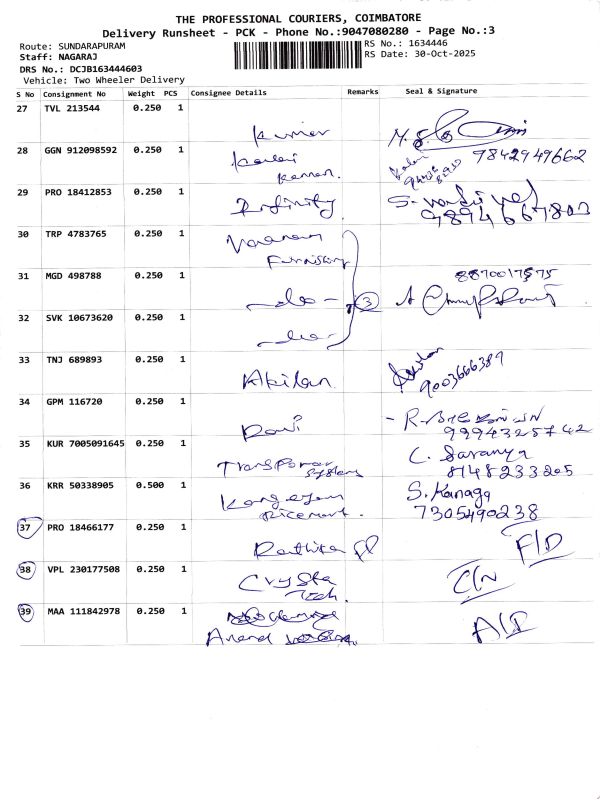 THE PROFESSIONAL COURIERS, COIMBATORE
Delivery Runsheet - PCK - Phone No.:9047080280 - Page No.:3
Route: SUNDARAPURAM
RS No.: 1634446
Staff: NAGARAJ
RS Date: 30-Oct-2025
DRS No.: DCJB163444603
Vehicle: Two Wheeler Delivery
S No Consignment No Weight PCS Consignee Details Remarks Seal & Signature
27 TVL 213544 0.250 1
Kumar
28 GGN 912098592 0.250 1
9842949662
29 PRO 18412853 0.250 1
Infinity
30 TRP 4783765 0.250 1
31 MGD 498788 0.250 1
8870017575
- do - 3
32 SVK 10673620 0.250 1
33 TNJ 689893 0.250 1
Akilan
9003666389
34 GPM 116720 0.250 1
Ravi
35 KUR 7005091645 0.250 1
C. Saranya
Systems 8148233205
36 KRR 50338905 0.500 1
S. Kanaga
7305490238
37 PRO 18466177 0.250 1
F/D
38 VPL 230177508 0.250 1
Crysta
Tech.
39 MAA 111842978 0.250 1
Anand
A/D